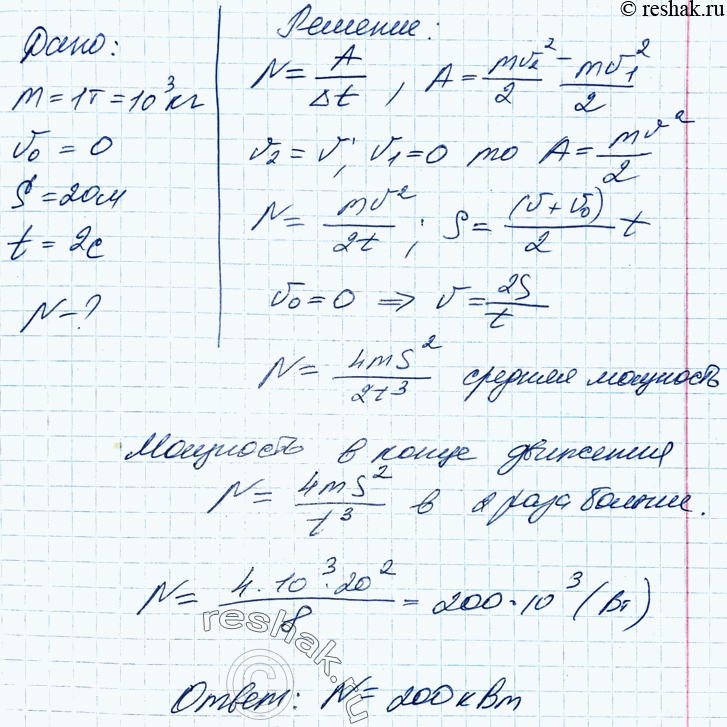 © reshak.ru
Дано:
m = 1т = 10³ кг
v₀ = 0
S = 20м
t = 2с
N - ?
Решение:
N = A/Δt , A = mv₂²/2 - mv₁²/2
v₂ = v; v₁ = 0 то A = mv²/2
N = mv²/2t ; S = (v + v₀)/2 t
v₀ = 0 ⇒ v = 2S/t
N = 4mS²/2t³ средняя мощность
Мощность в конце движения
N = 4mS²/t³ в 2 раза больше.
N = 4 · 10³ · 20²/8 = 200 · 10³ (Вт)
Ответ: N = 200 кВт